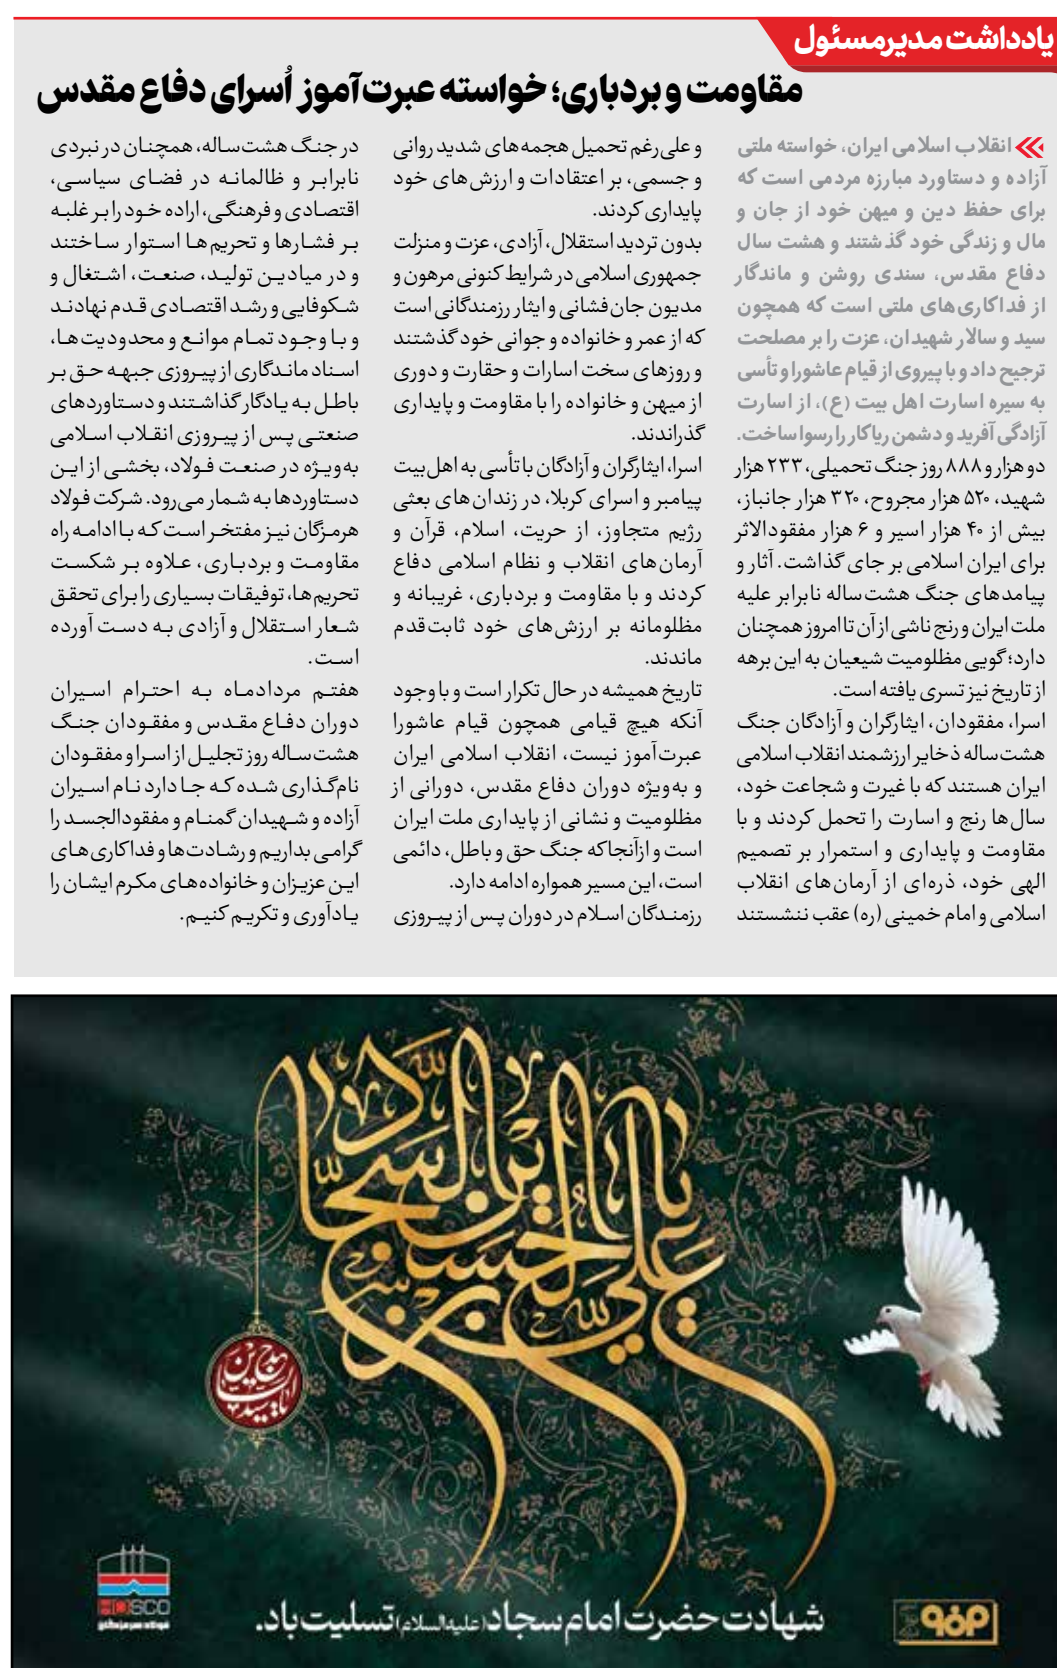 یادداشت مدیرمسئول
مقاومت و بردباری؛ خواسته عبرت‌آموز اُسرای دفاع مقدس
انقلاب اسلامی ایران، خواسته ملتی
آزاده و دستاورد مبارزه مردمی است که
برای حفظ دین و میهن خود از جان و
مال و زندگی خود گذشتند و هشت سال
دفاع مقدس، سندی روشن و ماندگار
از فداکاری‌های ملتی است که همچون
سید و سالار شهیدان، عزت را بر مصلحت
ترجیح داد و با پیروی از قیام عاشورا و تأسی
به سیره اسارت اهل بیت (ع)، از اسارت
آزادگی آفرید و دشمن ریاکار را رسوا ساخت.
دو هزار و ۸۸۸ روز جنگ تحمیلی، ۲۳۳ هزار
شهید، ۵۲۰ هزار مجروح، ۳۲۰ هزار جانباز،
بیش از ۴۰ هزار اسیر و ۶ هزار مفقودالاثر
برای ایران اسلامی بر جای گذاشت. آثار و
پیامدهای جنگ هشت‌ساله نابرابر علیه
ملت ایران و رنج ناشی از آن تا امروز همچنان
دارد؛ گویی مظلومیت شیعیان به این برهه
از تاریخ نیز تسری یافته است.
اسرا، مفقودان، ایثارگران و آزادگان جنگ
هشت‌ساله ذخایر ارزشمند انقلاب اسلامی
ایران هستند که با غیرت و شجاعت خود،
سال‌ها رنج و اسارت را تحمل کردند و با
مقاومت و پایداری و استمرار بر تصمیم
الهی خود، ذره‌ای از آرمان‌های انقلاب
اسلامی و امام خمینی (ره) عقب ننشستند
و علی‌رغم تحمیل هجمه‌های شدید روانی
و جسمی، بر اعتقادات و ارزش‌های خود
پایداری کردند.
بدون تردید استقلال، آزادی، عزت و منزلت
جمهوری اسلامی در شرایط کنونی مرهون و
مدیون جان‌فشانی و ایثار رزمندگانی است
که از عمر و خانواده و جوانی خود گذشتند
و روزهای سخت اسارات و حقارت و دوری
از میهن و خانواده را با مقاومت و پایداری
گذراندند.
اسرا، ایثارگران و آزادگان با تأسی به اهل بیت
پیامبر و اسرای کربلا، در زندان‌های بعثی
رژیم متجاوز، از حریت، اسلام، قرآن و
آرمان‌های انقلاب و نظام اسلامی دفاع
کردند و با مقاومت و بردباری، غریبانه و
مظلومانه بر ارزش‌های خود ثابت‌قدم
ماندند.
تاریخ همیشه در حال تکرار است و با وجود
آنکه هیچ قیامی همچون قیام عاشورا
عبرت‌آموز نیست، انقلاب اسلامی ایران
و به‌ویژه دوران دفاع مقدس، دورانی از
مظلومیت و نشانی از پایداری ملت ایران
است و ازآنجاکه جنگ حق و باطل، دائمی
است، این مسیر همواره ادامه دارد.
رزمندگان اسلام در دوران پس از پیروزی
در جنگ هشت‌ساله، همچنان در نبردی
نابرابر و ظالمانه در فضای سیاسی،
اقتصادی و فرهنگی، اراده خود را بر غلبه
بر فشارها و تحریم‌ها استوار ساختند
و در میادین تولید، صنعت، اشتغال و
شکوفایی و رشد اقتصادی قدم نهادند
و با وجود تمام موانع و محدودیت‌ها،
اسناد ماندگاری از پیروزی جبهه حق بر
باطل به یادگار گذاشتند و دستاوردهای
صنعتی پس از پیروزی انقلاب اسلامی
به‌ویژه در صنعت فولاد، بخشی از این
دستاوردها به شمار می‌رود. شرکت فولاد
هرمزگان نیز مفتخر است که با ادامه راه
مقاومت و بردباری، علاوه بر شکست
تحریم‌ها، توفیقات بسیاری را برای تحقق
شعار استقلال و آزادی به دست آورده
است.
هفتم مردادماه به احترام اسیران
دوران دفاع مقدس و مفقودان جنگ
هشت‌ساله روز تجلیل از اسرا و مفقودان
نام‌گذاری شده که جا دارد نام اسیران
آزاده و شهیدان گمنام و مفقودالجسد را
گرامی بداریم و رشادت‌ها و فداکاری‌های
این عزیزان و خانواده‌های مکرم ایشان را
یادآوری و تکریم کنیم.
یا علی بن الحسین السجاد
HOSCO
شهادت حضرت امام سجاد (علیه‌السلام) تسلیت باد.